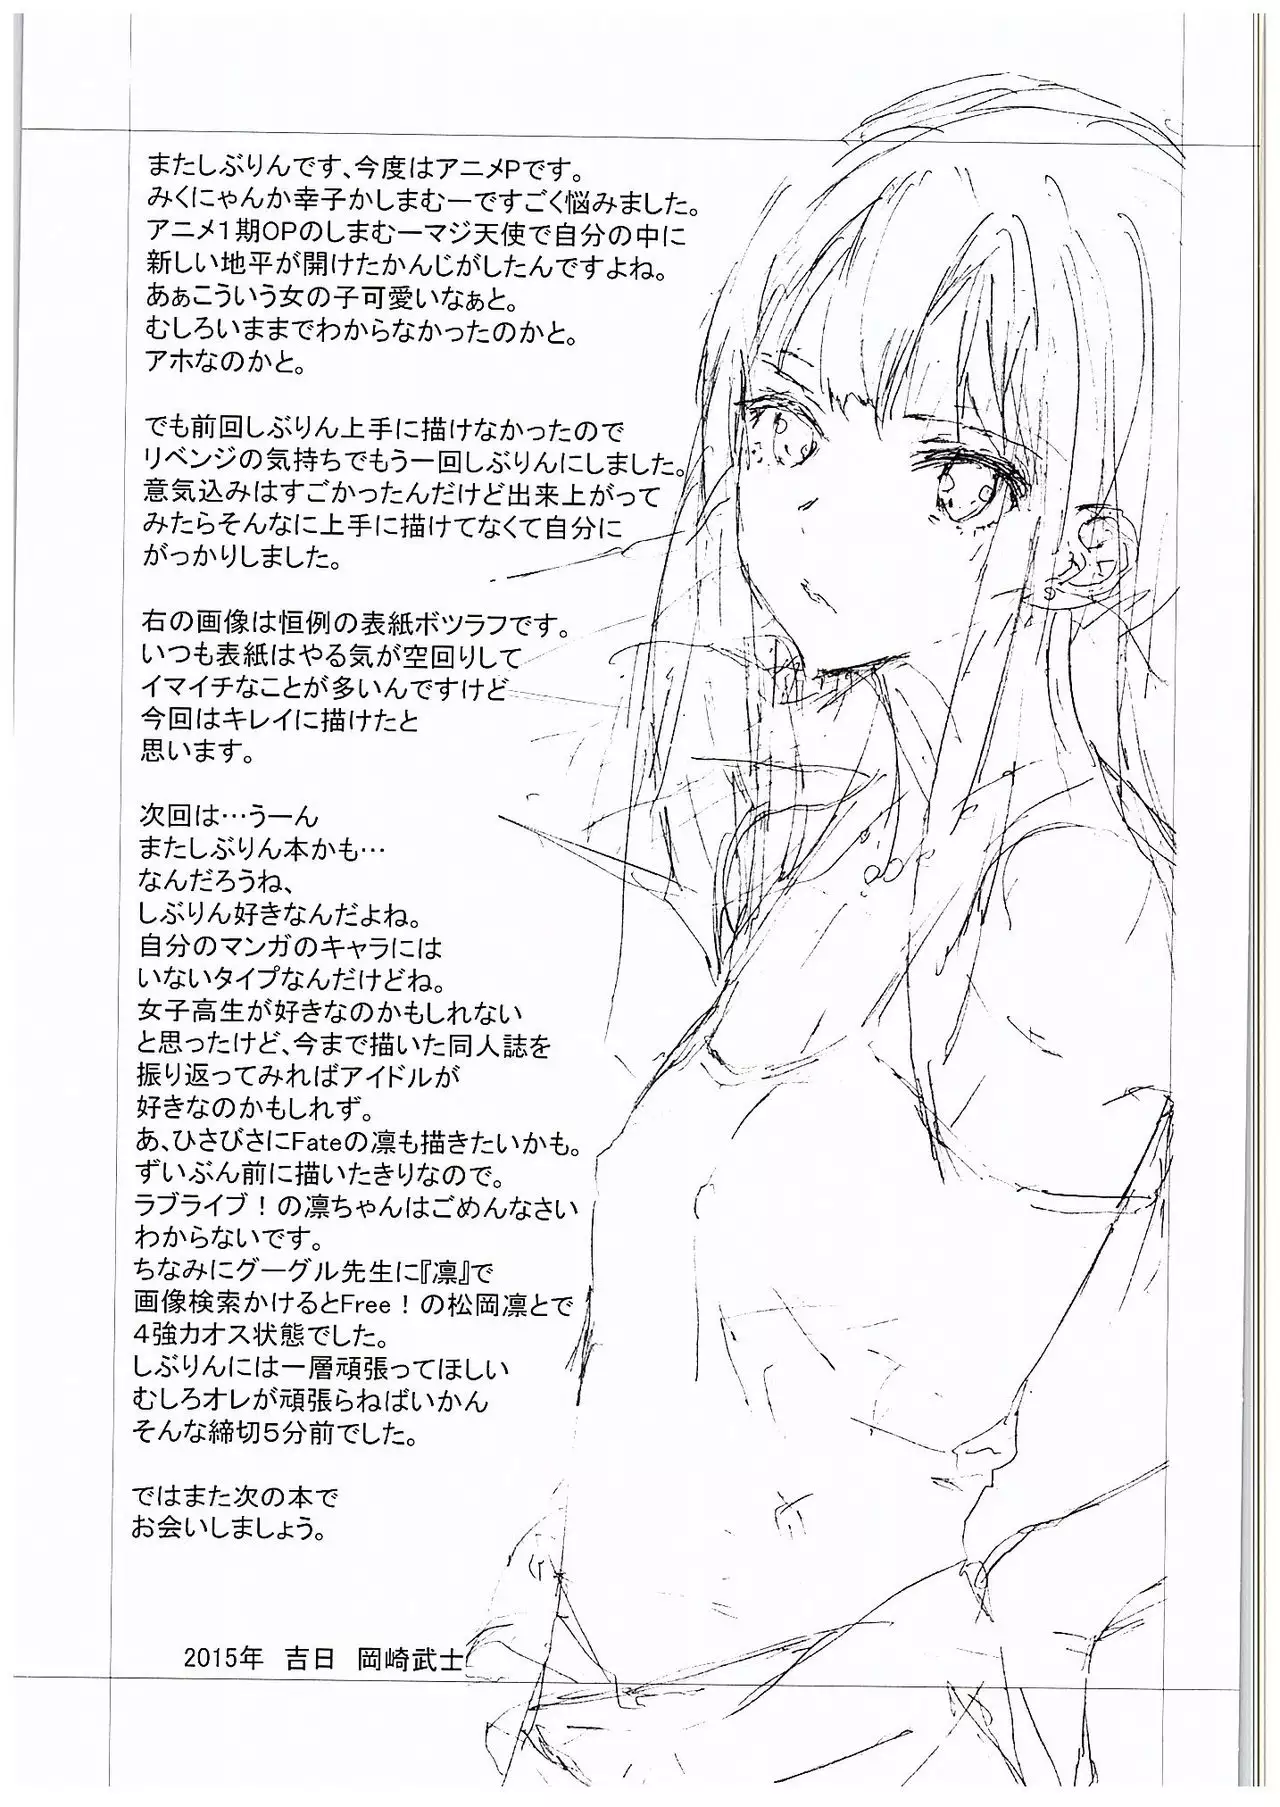 またしぶりんです、今度はアニメPです。
みくにゃんか幸子かしまむーですごく悩みました。
アニメ１期OPのしまむーマジ天使で自分の中に
新しい地平が開けたかんじがしたんですよね。
あぁこういう女の子可愛いなぁと。
むしろいままでわからなかったのかと。
アホなのかと。
でも前回しぶりん上手に描けなかったので
リベンジの気持ちでもう一回しぶりんにしました。
意気込みはすごかったんだけど出来上がって
みたらそんなに上手に描けてなくて自分に
がっかりしました。
右の画像は恒例の表紙ボツラフです。
いつも表紙はやる気が空回りして
イマイチなことが多いんですけど
今回はキレイに描けたと
思います。
次回は…うーん
またしぶりん本かも…
なんだろうね、
しぶりん好きなんだよね。
自分のマンガのキャラには
いないタイプなんだけどね。
女子高生が好きなのかもしれない
と思ったけど、今まで描いた同人誌を
振り返ってみればアイドルが
好きなのかもしれず。
あ、ひさびさにFateの凛も描きたいかも。
ずいぶん前に描いたきりなので。
ラブライブ！の凛ちゃんはごめんなさい
わからないです。
ちなみにグーグル先生に『凛』で
画像検索かけるとFree！の松岡凛とで
４強カオス状態でした。
しぶりんには一層頑張ってほしい
むしろオレが頑張らねばいかん
そんな締切５分前でした。
ではまた次の本で
お会いしましょう。
2015年　吉日　岡崎武士